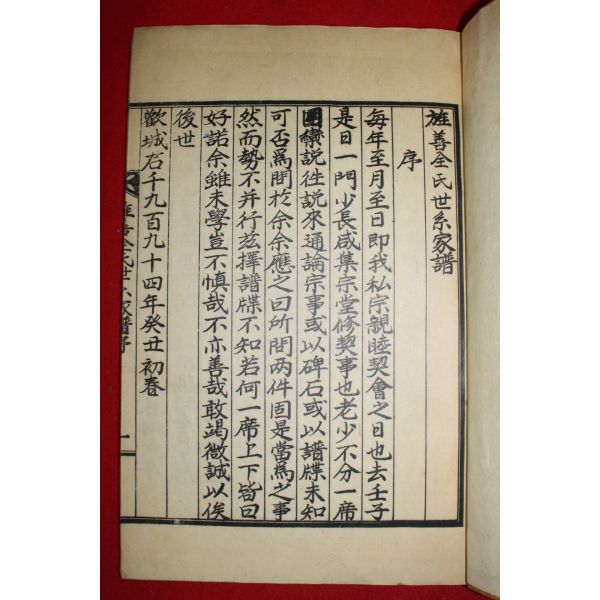 旌善全氏世系家譜
序
每年至月至日即我私宗親睦契會之日也去壬子
是日一門少長咸集宗堂修契事也老少不分一席
團欒説徃説來通論宗事或以碑石或以譜牒未知
可否爲問於余余應之曰所問两件固是當爲之事
然而勢不并行玆擇譜牒不知若何一席上下皆曰
好諾余雖未學豈不慎哉不亦善哉敢竭微誠以俟
後世
歡城后千九百九十四年癸丑初春
旌善全氏世系家譜序
一